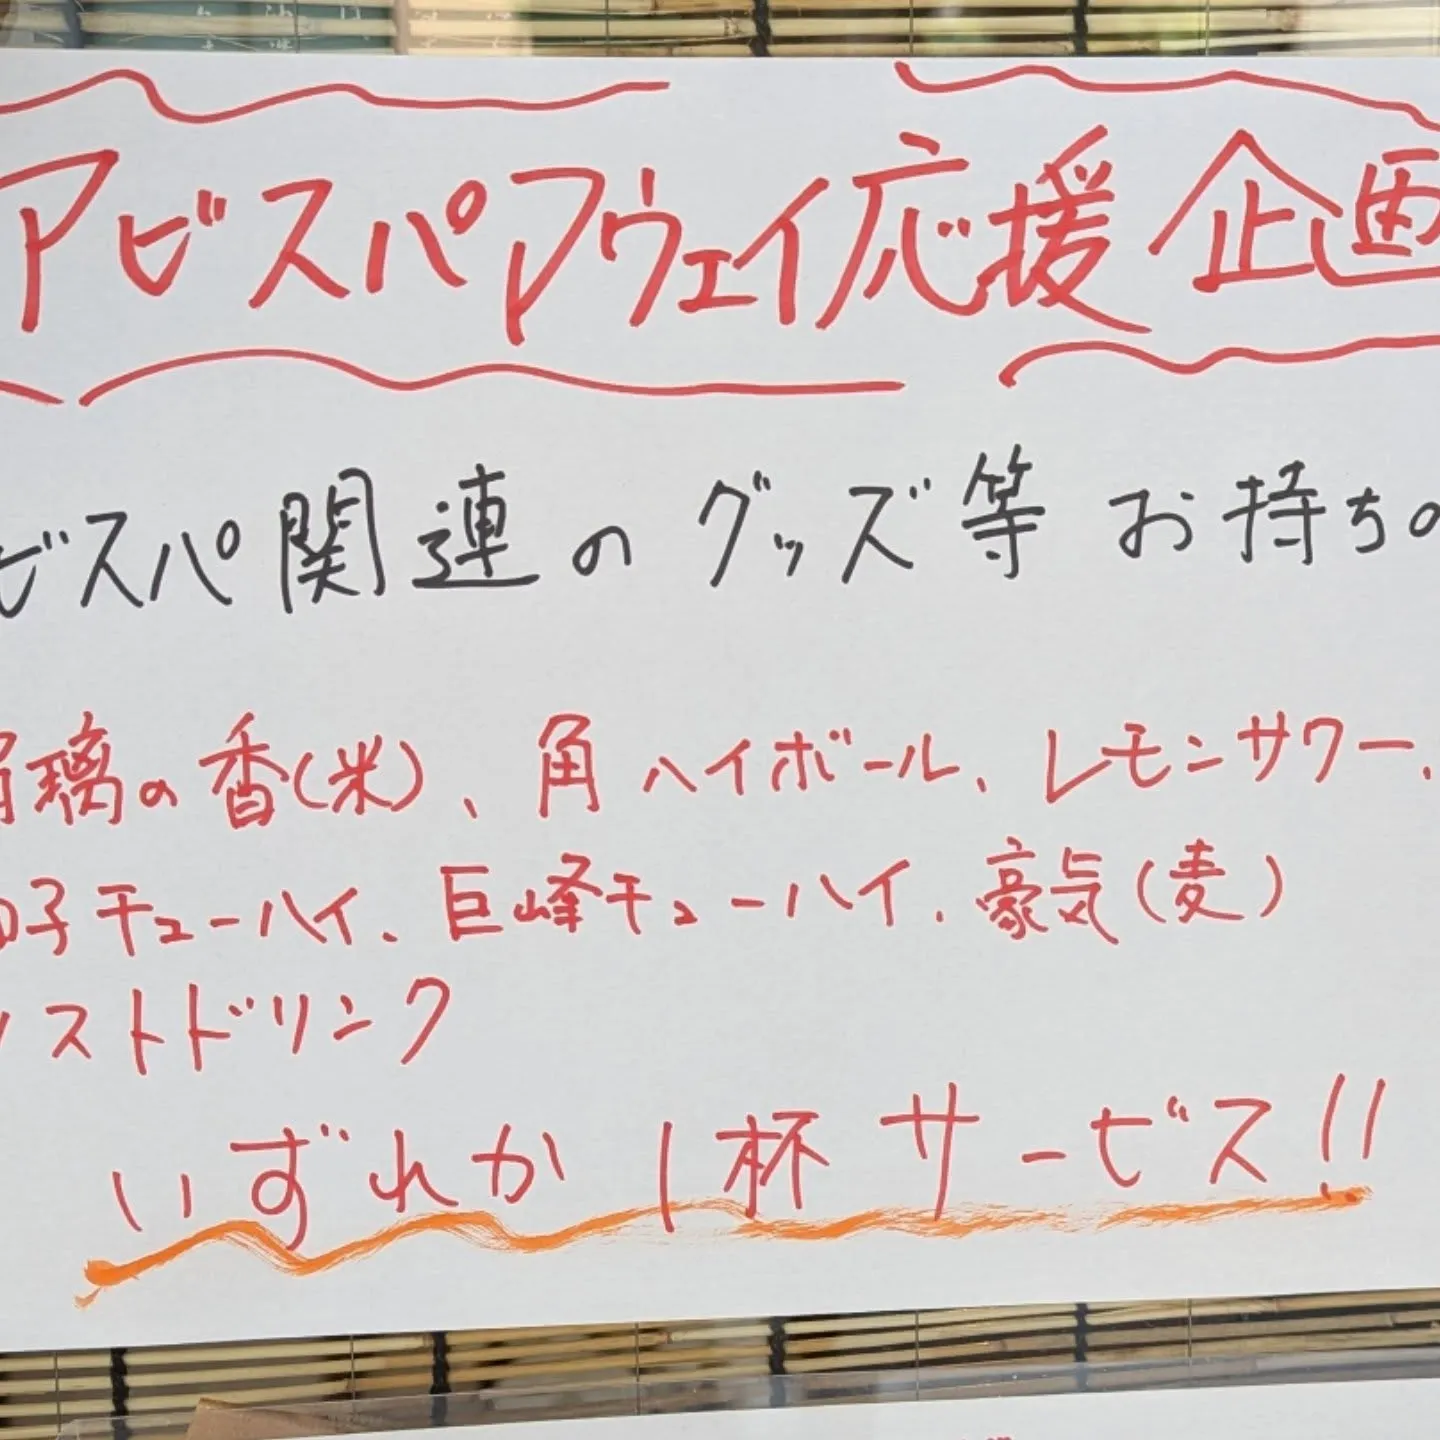 アビスパアウェイ応援企画
ビスパ関連のグッズ等お持ちの
璃の香(米)、角ハイボール、レモンサワー、
子チューハイ、巨峰チューハイ、豪気(麦)
ストドリンク
いずれか1杯サービス!!